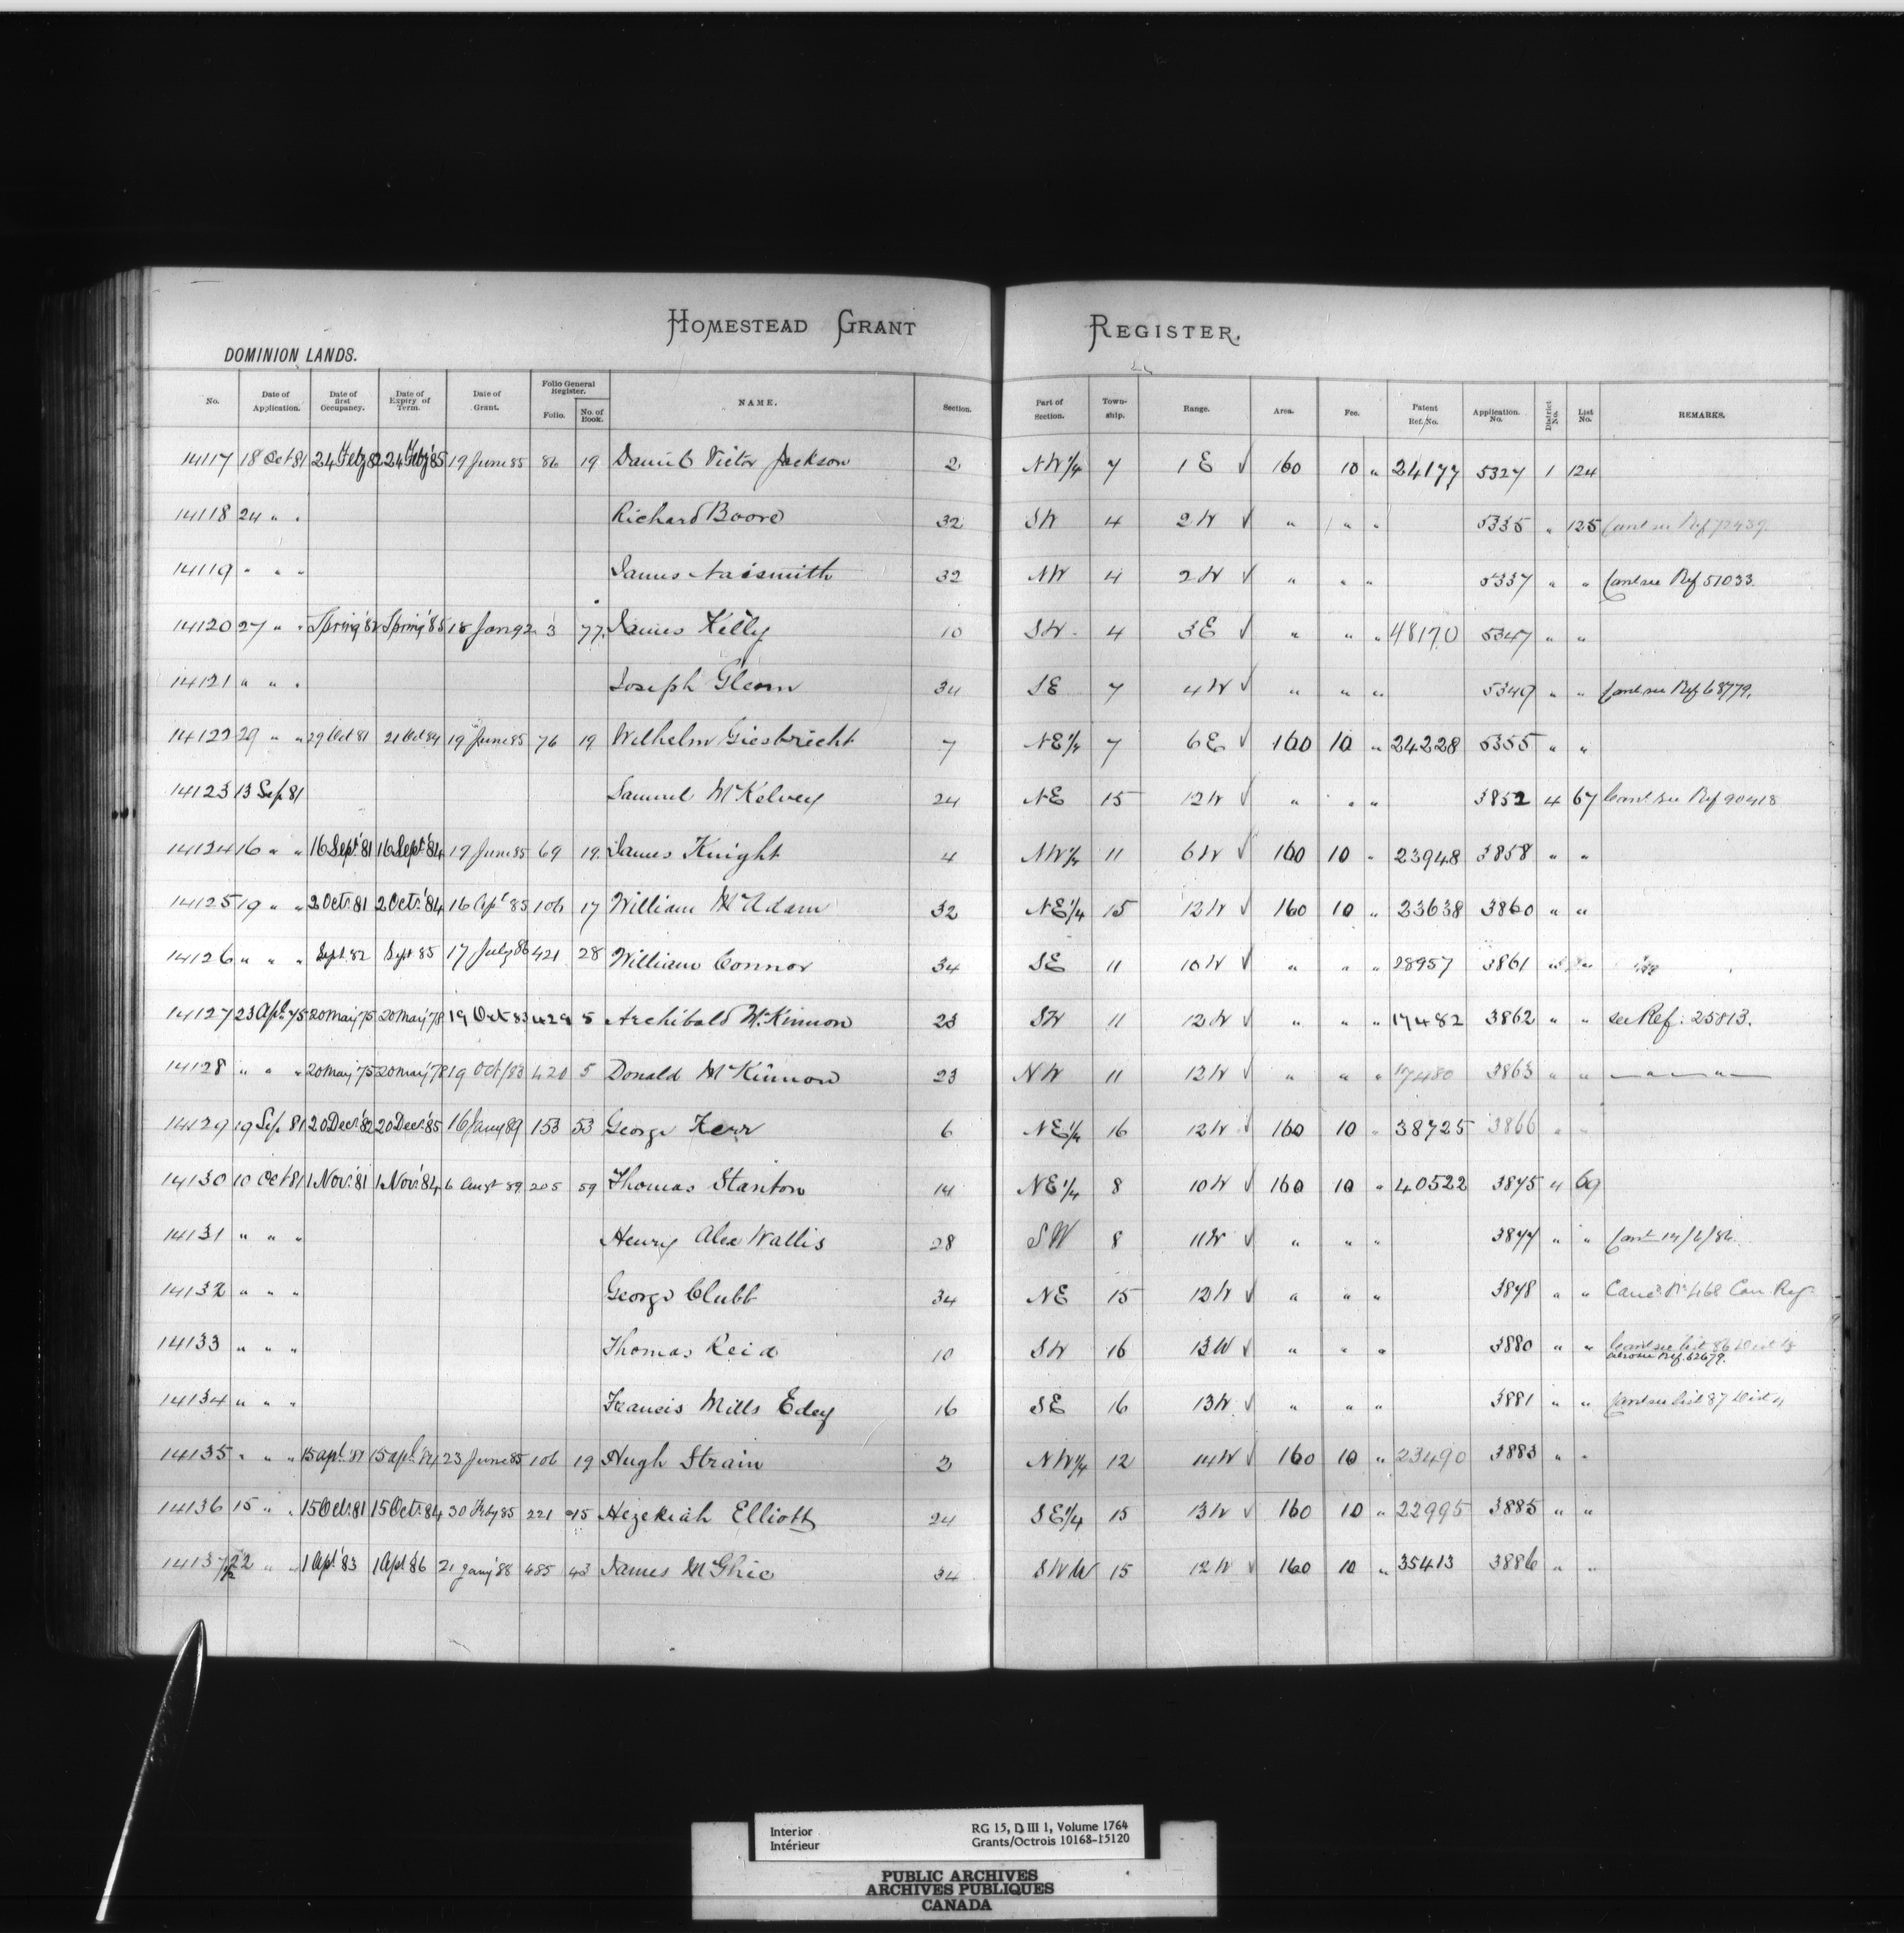 HOMESTEAD GRANT REGISTER.
DOMINION LANDS.
No. Date of Application. Date of first Occupancy. Date of Expiry of Term. Date of Grant. Folio General Register. Folio. No. of Book. NAME. Section. Part of Section. Township. Range. Area. Fee. Patent Ref. No. Application. No. District No. List No. REMARKS.
14117 18 Oct 81 24 Feby 82 24 Feby '85 19 June 85 86 19 Daniel Victor Jackson 2 NW 1/4 7 1 E √ 160 10 " 24177 5327 1 124
14118 24 " " Richard Boord 32 SW 4 2 W √ " " " 5335 " 125 Canl see Ref 72439.
14119 " " " James Naismith 32 NW 4 2 W √ " " " 5337 " " Canl see Ref 51033.
14120 27 " " Spring '82 Spring '85 18 Jan 92 3 77 James Kelly 10 SW 4 3 E √ " " " 48170 5347 " "
14121 " " " Joseph Glenn 34 SE 7 4 W √ " " " 5349 " " Canl see Ref 68779.
14122 29 " " 29 Oct 81 21 Oct 84 19 June 85 76 19 Wilhelm Giesbrecht 7 NE 1/4 7 6 E √ 160 10 " 24228 5355 " "
14123 13 Sep 81 Samuel McKelvey 24 NE 15 12 W √ " " " 3852 4 67 Canl see Ref 90418
14124 16 " " 16 Sept 81 16 Sept '84 19 June 85 69 19 James Knight 4 NW 1/4 11 6 W √ 160 10 " 23948 3858 " "
14125 19 " " 2 Oct. 81 2 Oct. '84 16 Apl 85 106 17 William McAdam 32 NE 1/4 15 12 W √ 160 10 " 23638 3860 " "
14126 " " " Sept 82 Sept 85 17 July 86 421 28 William Connor 34 SE 11 10 W √ " " " 28957 3861 " "
14127 23 Apl. 75 20 May '75 20 May '78 19 Oct 83 429 5 Archibald McKinnon 23 SW 11 12 W √ " " " 17482 3862 " " see Ref. 25813.
14128 " " " 20 May '75 20 May '78 19 Oct/83 420 5 Donald McKinnon 23 NW 11 12 W √ " " " 17480 3863 " " — " — " —
14129 19 Sep 81 20 Dec. '82 20 Dec. '85 16 Jany 89 153 53 George Kerr 6 NE 1/4 16 12 W √ 160 10 " 38725 3866 " "
14130 10 Oct 81 1 Nov. '81 1 Nov. '84 6 Augt 89 205 59 Thomas Stanton 14 NE 1/4 8 10 W √ 160 10 " 40522 3875 " 69
14131 " " " Henry Alex Wallis 28 SW 8 11 W √ " " " 3877 " " Canl 14/6/86.
14132 " " " George Clubb 34 NE 15 12 W √ " " " 3878 " " Canc'd No 468 Can. Reg.
14133 " " " Thomas Reid 10 SW 16 13 W √ " " " 3880 " " Canl see list 86 Dist
also see Ref. 62679.
14134 " " " Francis Mills Edey 16 SE 16 13 W √ " " " 3881 " " Canl see list 87 Dist
14135 " " " 15 Apl. '81 15 Apl. '84 23 June 85 106 19 Hugh Strain 2 NW 1/4 12 14 W √ 160 10 " 23490 3883 " "
14136 15 " " 15 Oct. 81 15 Oct. 84 30 Feby 85 221 15 Hezekiah Elliott 24 SE 1/4 15 13 W √ 160 10 " 22995 3885 " "
14137 22 " " 1 Apl. '83 1 Apl. '86 21 Jany '88 485 43 James McGhie 34 SW 15 12 W √ 160 10 " 35413 3886 " "
Interior RG 15, D III 1, Volume 1764
Intérieur Grants/Octrois 10168-15120
PUBLIC ARCHIVES
ARCHIVES PUBLIQUES
CANADA